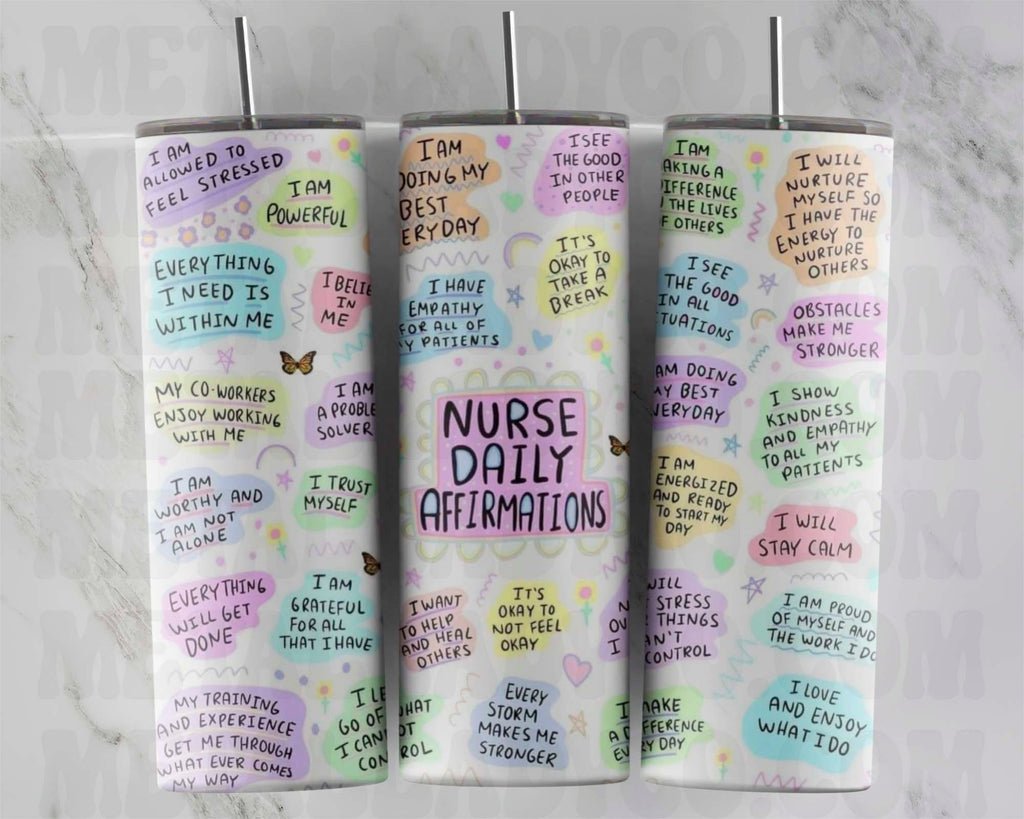 METALLADYCO.COM
I AM
ALLOWED TO
FEEL STRESSED
I AM
POWERFUL
EVERYTHING
I NEED IS
WITHIN ME
I BELIE
IN
ME
MY CO-WORKERS
ENJOY WORKING
WITH ME
I AM
A PROBLE
SOLVER
I AM
WORTHY AND
I AM NOT
ALONE
I TRUST
MYSELF
EVERYTHING
WILL GET
DONE
I AM
GRATEFUL
FOR ALL
THAT I HAVE
MY TRAINING
AND EXPERIENCE
GET ME THROUGH
WHAT EVER COMES
MY WAY
I LE
GO OF
I CAN
CON
I AM
DOING MY
BEST
ERYDAY
I SEE
THE GOOD
IN OTHER
PEOPLE
I HAVE
EMPATHY
FOR ALL OF
MY PATIENTS
IT'S
OKAY TO
TAKE A
BREAK
NURSE
DAILY
AFFIRMATIONS
I WANT
TO HELP
AND HEAL
OTHERS
IT'S
OKAY TO
NOT FEEL
OKAY
WHAT
OT
ROL
EVERY
STORM
MAKES ME
STRONGER
I AM
AKING A
DIFFERENCE
N THE LIVES
OF OTHERS
I WILL
NURTURE
MYSELF SO
I HAVE THE
ENERGY TO
NURTURE
OTHERS
I SEE
THE GOOD
IN ALL
TUATIONS
OBSTACLES
MAKE ME
STRONGER
AM DOING
MY BEST
VERYDAY
I SHOW
KINDNESS
AND EMPATHY
TO ALL MY
PATIENTS
I AM
ENERGIZED
AND READY
TO START MY
DAY
I WILL
STAY CALM
WILL
T STRESS
R THINGS
AN'T
CONTROL
I AM PROUD
OF MYSELF AND
THE WORK I DO
I MAKE
A DIFFERENCE
EVERY DAY
I LOVE
AND ENJOY
WHAT I DO